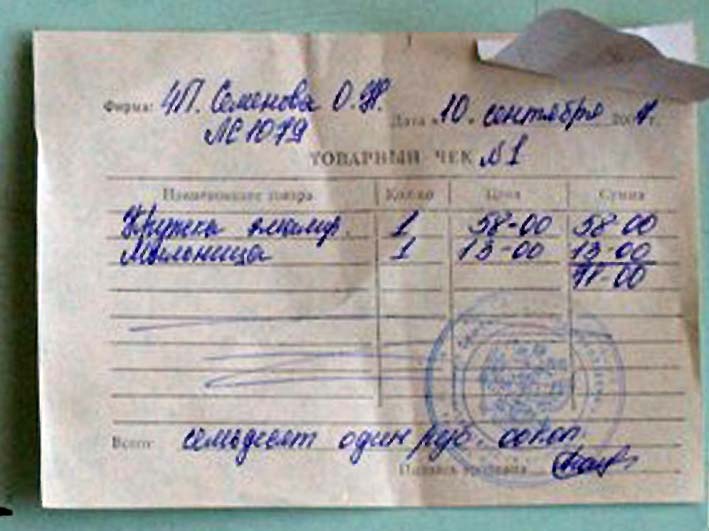 Фирма: ЧП. Семенова О.Н.
ЛС1079
Дата "10" сентября 2007г.
ТОВАРНЫЙ ЧЕК №1
Наименование товара Кол-во Цена Сумма
Кружка эмалир. 1 58-00 58-00
Мыльница 1 13-00 13-00
71-00
Всего: семьдесят один руб. 00коп.
Подпись продавца